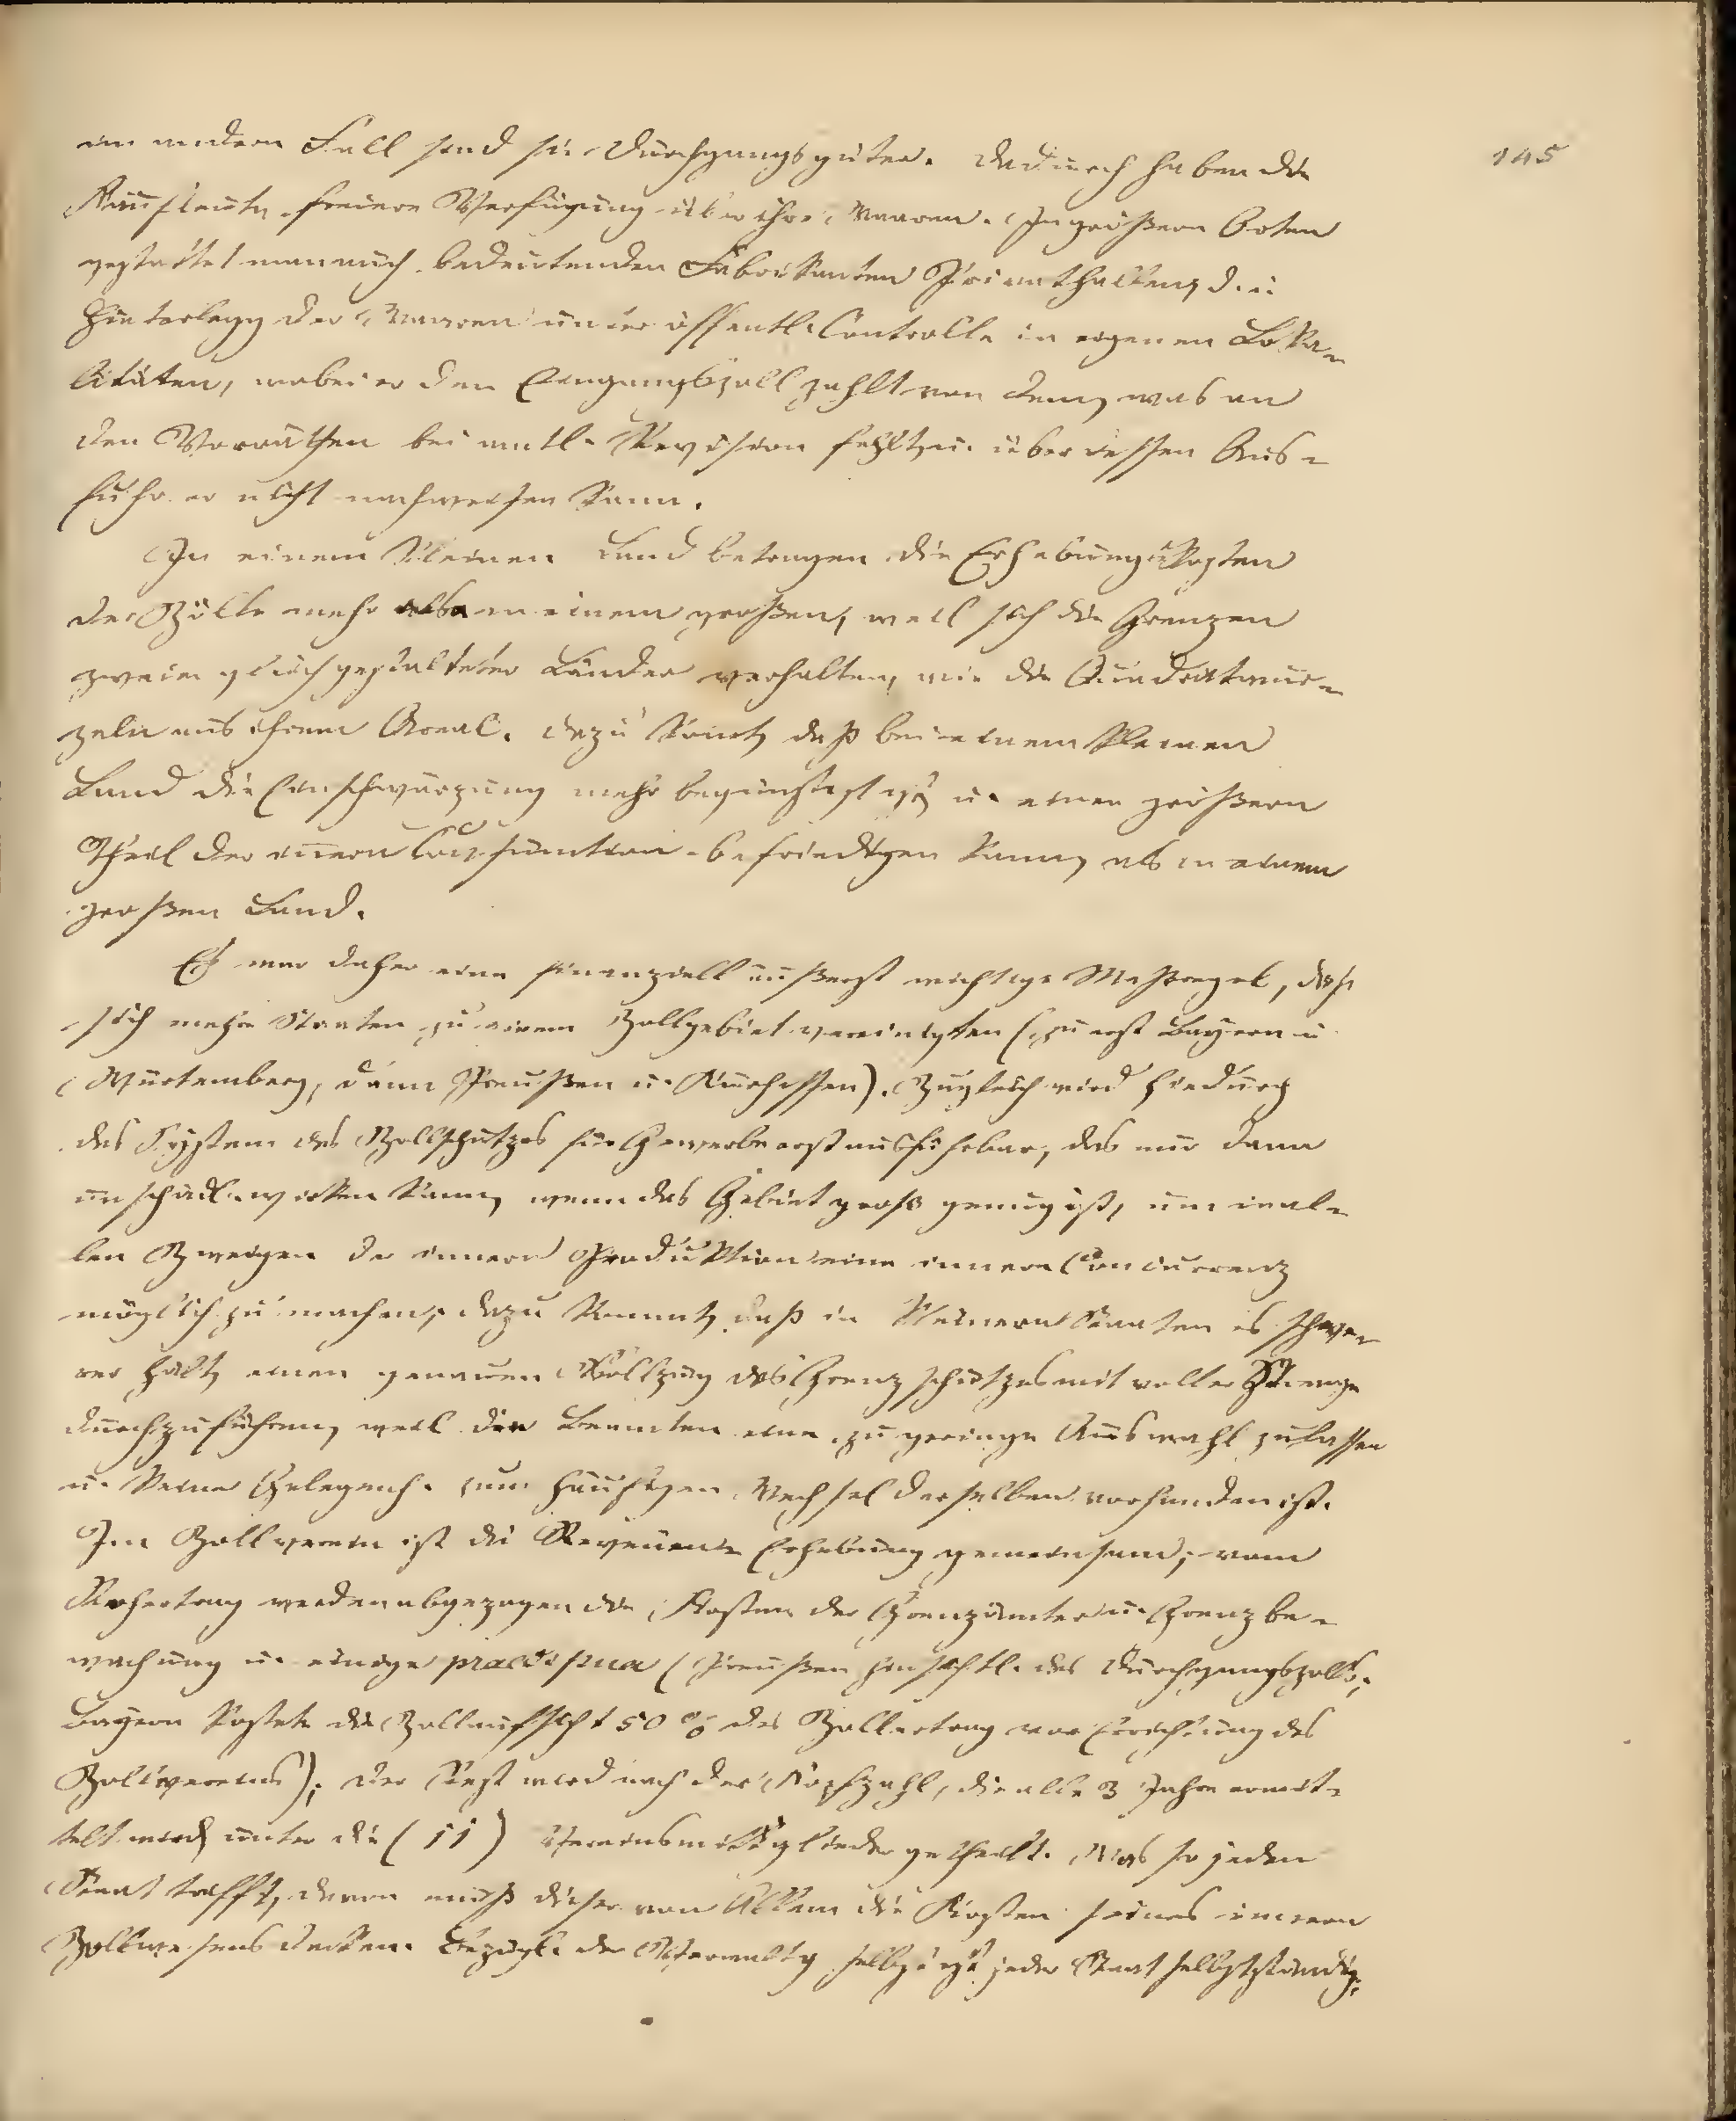 145
im andern Fall sind sie Durchgangsgüter. Dadurch haben die
Kaufleute freiere Verfügung über ihre Waaren. In größern Orten
gestattet man auch bedeutenden Fabrikanten Privathallen, d. i.
Hinterlegg der Waaren unter öffentl. Controlle in eigenen Loka-
litäten, wobei er den Eingangszoll zahlt von dem, was an
den Vorräthen bei amtl. Revision fehlt, u. über dessen Aus-
fuhr er nicht nachweisen kann.
In einem kleinen Land betragen die Erhebungskosten
der Zölle mehr als in einem großen, weil sich die Grenzen
zweier gleichgestalteter Länder verhalten, wie die Quadratwur-
zeln aus ihrem Areal. Dazu kömt, daß bei einem kleinen
Land die Einschwärzung mehr begünstigt ist u. einen größern
Theil der innern Consumtion befriedigen kann, als in einem
großen Land.
Es war daher eine finanziell äußerst wichtige Maßregel, daß
sich mehre Staaten zu einem Zollgebiet vereinigten (zuerst Bayern u
Würtemberg, dann Preußen u. Kurhessen). Zugleich wird hiedurch
das System des Zollschutzes für Gewerbe erst ausführbar, das nur dann
unschädl. wirken kann, wenn das Gebiet groß genug ist, um in al-
len Zweigen der innern Produktion eine innere Concurrenz
möglich zu machen; dazu kommt, daß in kleinern Staaten es schwe-
rer hält, einen genauen Vollzug des Grenzschutzes mit voller Strenge
durchzuführen, weil die Beamten eine zu geringe Auswahl zulassen
u. keine Gelegenh. zum häufigen Wechsel derselben vorhanden ist.
Im Zollverein ist die Revenuen Erhebung gemeinsam; vom
Rohertrag werden abgezogen die Kosten der Grenzämter u. Grenzbe-
wachung u. einige praecipua (Preußen hinsichtl. des Durchgangszolls;
Bayern kostete die Zollaufsicht 50 % des Zollertrag vor Errichtung des
Zollvereins); der Rest wird nach der Kopfzahl, die alle 3 Jahre ermit-
telt wird, unter die (11) Vereinsmitglieder getheilt. Was so jeden
Staat trifft, davon muß dieser vor Allem die Kosten seines innern
Zollwesens decken. Bezügl. der Verwaltg selbst ist jeder Staat selbstständig;